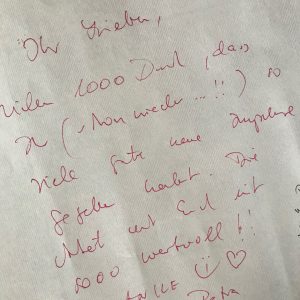 Ihr Lieben,
vielen 1000 Dank, dass
(schon wieder...!!) so
viele gute neue
gegeben habt. Die
Arbeit mit Euch ist
sooo wertvoll!!
DANKE ☺ ♡